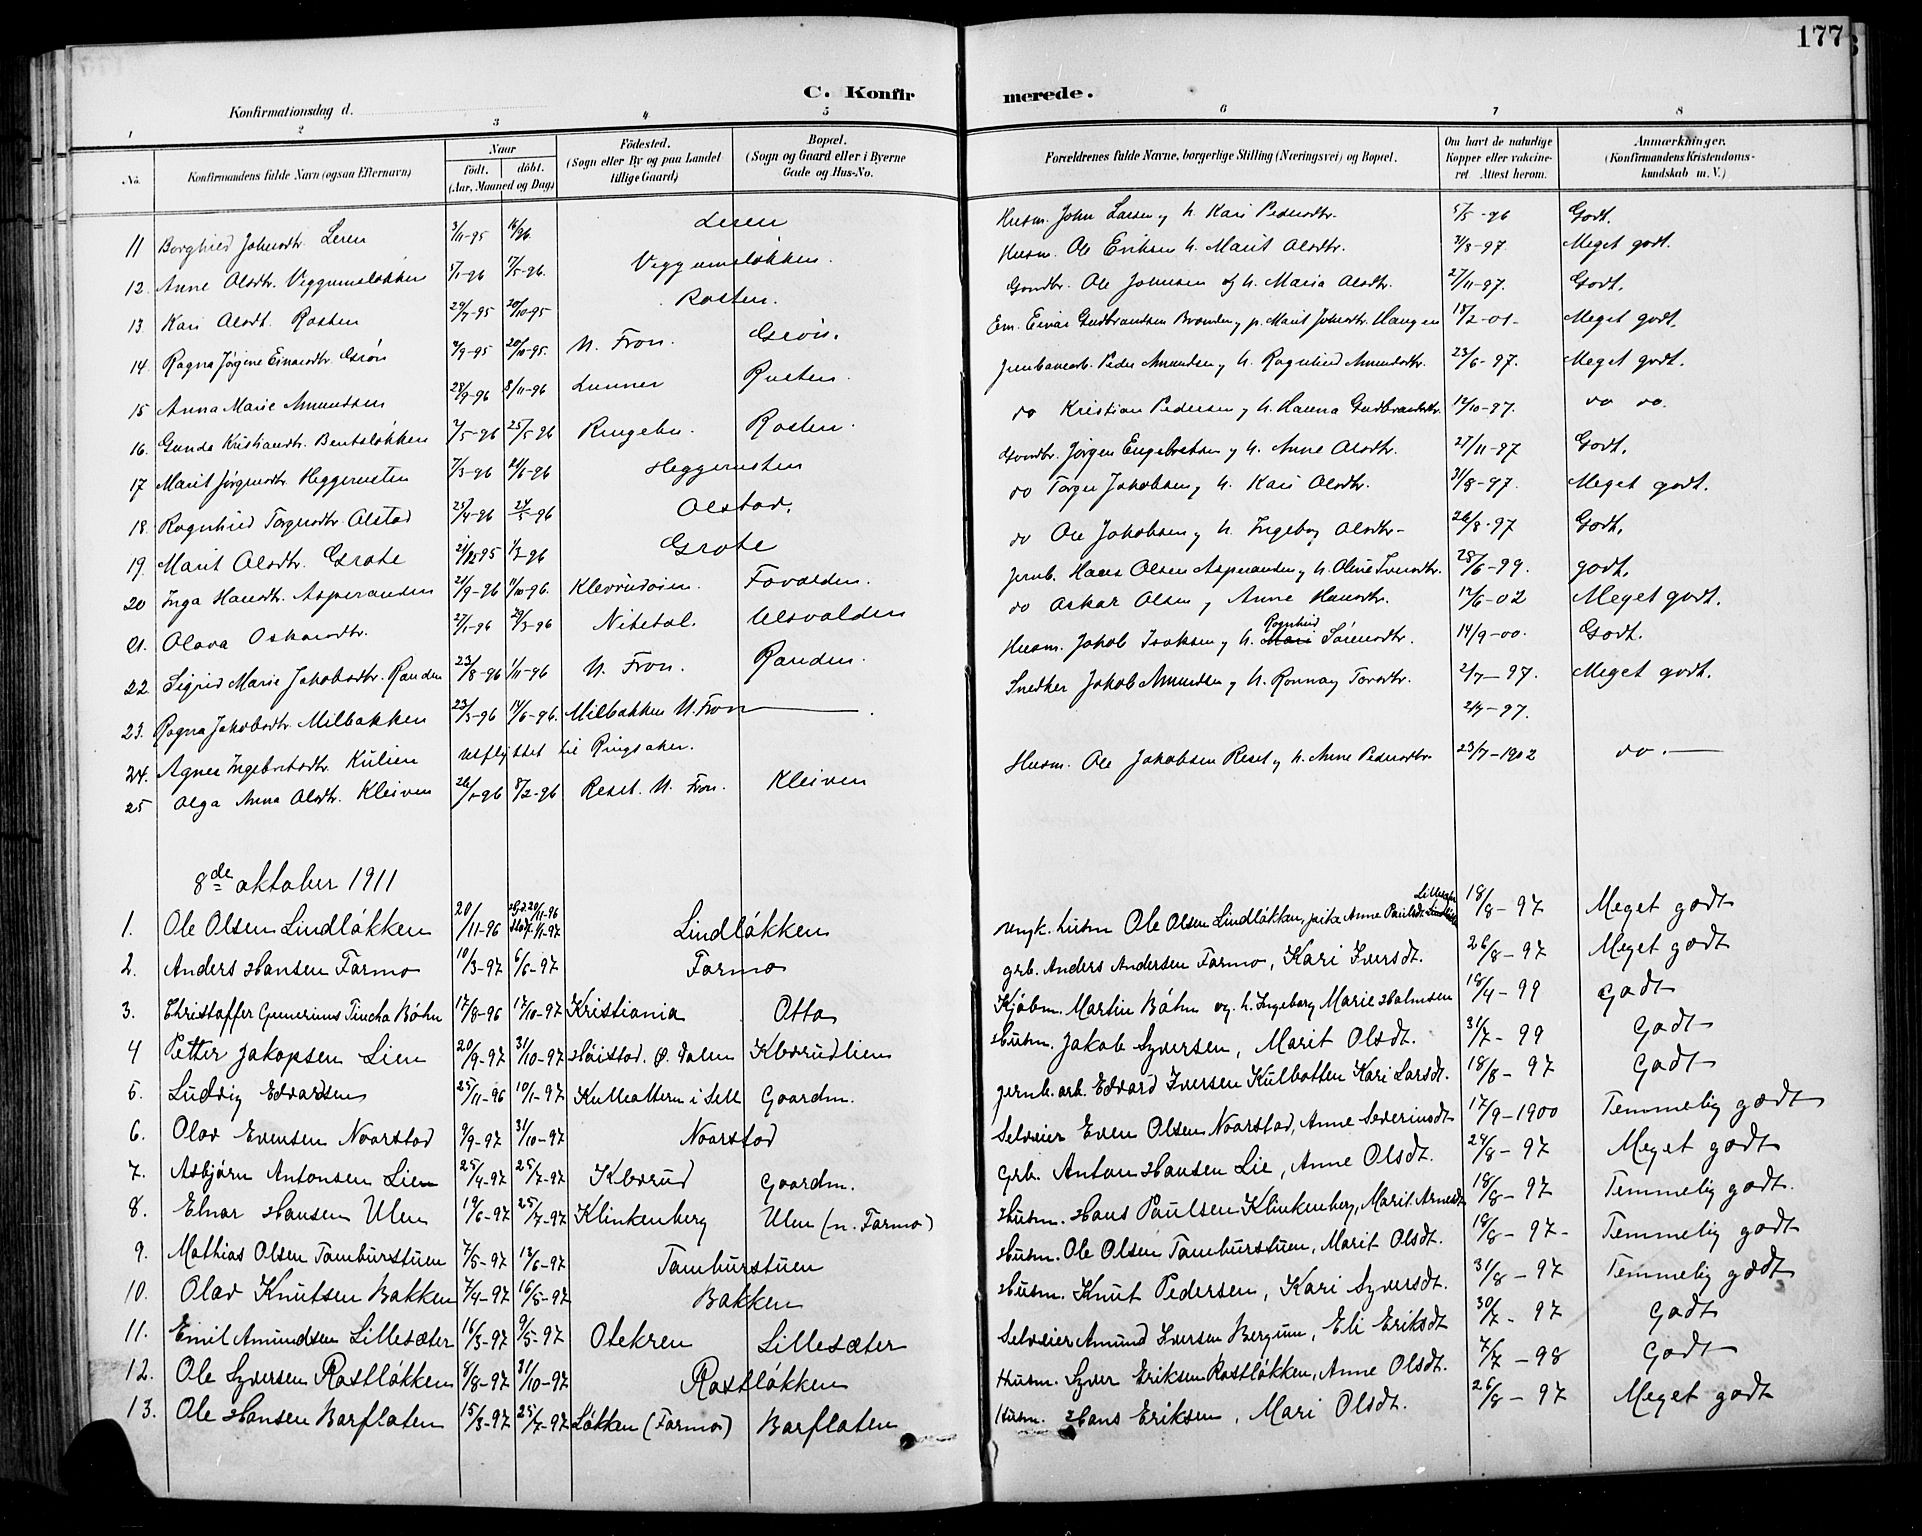 177
C. Konfirmerede.
Konfirmationsdag d.
1 2 3 4 5 6 7 8
No. Konfirmandens fulde Navn (ogsaa Efternavn) Naar født. døbt. (Aar, Maaned og Dag) Födested. (Sogn eller By og paa Landet tillige Gaard) Bopæl. (Sogn og Gaard eller i Byerne Gade og Hus-No. Forældrenes fulde Navne, borgerlige Stilling (Næringsvei) og Bopæl. Om havt de naturlige Kopper eller vakcineret Attest herom. Anmærkninger. (Konfirmandens Kristendomskundskab m. V.)
11 Borghild Johnsdtr. Leren 3/11-95 16/2 96 Leren Husm. John Larsen og h. Kari Pedersdtr. 5/5-96 Godt.
12. Anne Olsdtr. Veggumsløkken 5/1-96 17/5-96. Veggumsløkken. Husm. Ole Eriksen h. Marit Olsdtr. 31/8-97. Meget godt.
13. Kari Olsdt. Rosten 29/7-95 20/10-95 Rosten. Gaardbr. Ole Johnsen og h. Maria Olsdtr. 27/11-97. Godt.
14. Ragna Jørgine Einarsdtr. Grøn 9/9-95 20/10-95. N. Fron. Grøn. Em. Einar Gudbrandsen Brenden og p. Marit Johnsdtr. Haugen 18/2-01- Meget godt.
15 Anna Marie Amundsen 28/9-96 8/11-96 Lunner Rusten. Jernbanearb. Peder Amundsen og h. Ragnhild Amundsdtr. 23/6-97. Meget godt.
16. Gunda Kristiansdtr. Bentsløkken 7/5-96 25/5-96 Ringebu. Rosten. do Kristian Pedersen og h. Hanna Gudbrandsdtr. 12/10-97. do do.
17 Marit Jørgensdtr. Heggerusten 7/3-96 21/6-96 Heggerusten Gaardbr. Jørgen Engebretsen og h. Anne Olsdtr. 27/11-97 Godt.
18. Ragnhild Torgersdtr. Olstad 25/4-96 24/5-96 Olstad. do Torger Jakobsen og h. Kari Olsdtr. 31/8-97. Meget godt.
19. Marit Olsdtr. Grote 21/12 95 1/3-96 Grote do Ole Jakobsen og h. Ingeborg Olsdtr- 26/8-97 Godt.
20 Inga Hansdtr. Asperanden 21/9-96 11/10-96. Klevrudøien. Fovolden. Jernb. Hans Olsen Asperanden og h. Oline Iversdtr. 28/6-99. godt.
21. Olava Oskarsdtr. 27/1-96 29/3-96 Nitetal. Ulsvolden do Oskar Olsen og Anne Hansdtr. 12/6-02 Meget godt.
22 Sigrid Marie Jakobsdtr. Randen 23/8-96 1/11-96 N. Fron. Randen. Husm. Jakob Isaksen og h. Mari Ragnhild Sørensdtr. 14/9-00. Godt.
23. Ragna Jakobsdtr Milbakken 23/3-96 14/6-96. Milbakken N. Fron Snedker Jakob Amundsen og h. Rønnaug Torsdtr. 2/7-97. Meget godt.
24. Agnes Ingebretsdtr Kulien utflyttet til Ringsaker. 2/7-97.
25 Olga Anna Olsdtr. Kleiven 26/1-96 8/2-96 Reset. N. Fron. Kleiven Husm. Ole Jakobsen Reset og h. Anne Pedersdtr 23/7-1902 do.
8de oktober 1911
1. Ole Olsen Lindløkken 20/11-96 20/11-96 1/1-97 Lindløkken ungk. husm Ole Olsen Lindløkken, pike Anne Paulsdt. 18/8-97 Meget godt
2. Anders Hansen Formo 10/3-97 6/6-97 Formo grb. Anders Andersen Formo, Kari Iversdt. 26/8-97 Meget godt
3. Christoffer Gunerius Tincha Bøhn 17/8-96 17/10-97 Kristiania Otta Kjøbm. Martin Bøhn og h. Ingeborg Marie Holmsen 18/4-99 godt
4 Petter Jakopsen Lien 20/9-97 31/10-97 Høistad. Ø. dalen Kleverudlien Husm. Jakob Syversen, Marit Olsdt. 31/7-99 Godt
5. Ludvig Edvardsen 25/11-96 10/1-97 Kulbotten i Sell Gaardm. jernb. arb. Edvard Iversen Kulbotten Kari Larsdt. 18/8-97 Godt
6. Olav Evensen Noarstad 9/9-97 31/10-97 Noarstad Selveier Even Olsen Noarstad, Anne Severinsdt 17/9-1900 Temmelig godt
7. Asbjørn Antonsen Lien 25/4-97 25/7-97 Kleverud Gaardm. Grb. Anton Hansen Lie, Anne Olsdt. 24/8-97 Meget godt
8. Elnar Hansen Ulen 19/6-97 25/7-97 Klinkenberg Ulen (n. Formo) Husm. Hans Paulsen Klinkenberg, Marit Arnesdt 18/8-97 Temmelig godt.
9. Mathias Olsen Tamburstuen 7/5-97 13/6-97 Tamburstuen Husm. Ole Olsen Tamburstuen, Marit Olsdt. 18/8-97- Temmelig godt
10. Olav Knutsen Bakken 7/4-97 16/5-97 Bakken Husm. Knut Pedersen, Kari Syversdt. 31/8-97 Temmelig godt
11. Emil Amundsen Lillesæter 16/3-97 9/5-97 Otekren Lillesæter Selveier Amund Iversen Bergum, Eli Eriksdt 30/7-97 Godt
12. Ole Syversen Rostløkken 8/8-97 31/10-97 Rostløkken Husm. Syver Eriksen Rostløkken, Anne Olsdt. 7/7-98 Godt
13. Ole Hansen Barflaten 15/3-97 25/7-97 Løkken (Formo) Barflaten Husm. Hans Eriksen, Mari Olsdt. 26/8-97 Meget godt